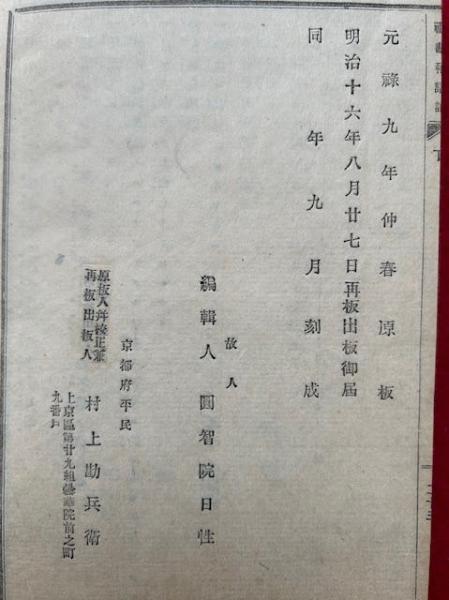 元祿九年仲春原板
明治十六年八月廿七日再板出板御届
同年九月刻成
故人
編輯人 圓智院日性
京都府平民
原板人并校正兼
再板出板人
村上勘兵衛
上京區第廿九組曇華院前之町
九番戸